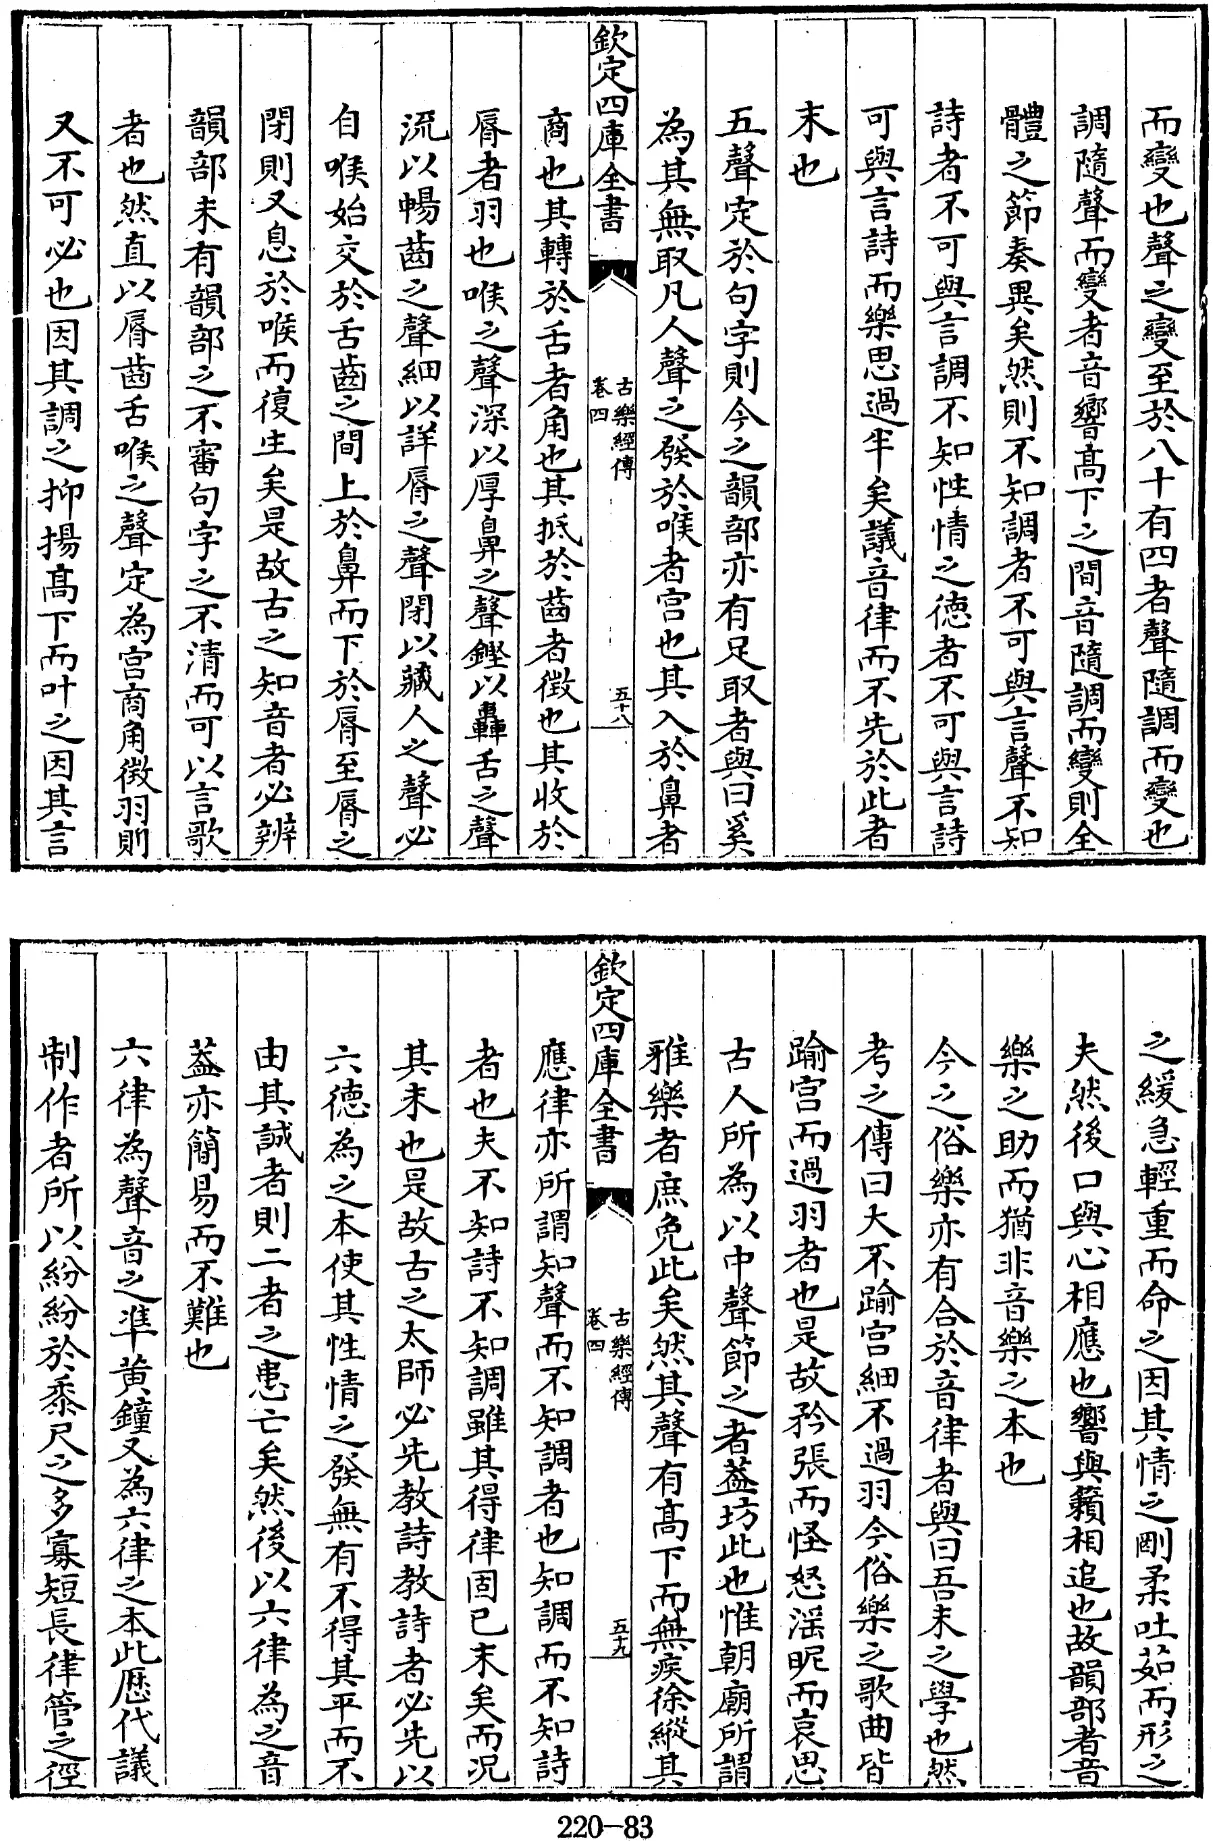 而變也聲之變至於八十有四者聲隨調而變也
調隨聲而變者音響高下之間音隨調而變則全
體之節奏異矣然則不知調者不可與言聲不知
詩者不可與言調不知性情之德者不可與言詩
可與言詩而樂思過半矣議音律而不先於此者
末也
五聲定於句字則今之韻部亦有足取者與曰奚
為其無取凡人聲之發於喉者宮也其入於鼻者
欽定四庫全書
古樂經傳
卷四
五十八
商也其轉於舌者角也其抵於齒者徵也其收於
脣者羽也喉之聲深以厚鼻之聲鏗以轟舌之聲
流以暢齒之聲細以詳脣之聲閉以藏人之聲必
自喉始交於舌齒之間上於鼻而下於脣至脣之
閉則又息於喉而復生矣是故古之知音者必辨
韻部未有韻部之不審句字之不清而可以言歌
者也然直以脣齒舌喉之聲定為宮商角徵羽則
又不可必也因其調之抑揚高下而叶之因其言
之緩急輕重而命之因其情之剛柔吐茹而形之
夫然後口與心相應也響與籟相追也故韻部者音
樂之助而猶非音樂之本也
今之俗樂亦有合於音律者與曰吾未之學也然
考之傳曰大不踰宮細不過羽今俗樂之歌曲皆
踰宮而過羽者也是故矜張而怪怒滛昵而哀思
古人所為以中聲節之者葢坊此也惟朝廟所謂
雅樂者庶免此矣然其聲有高下而無疾徐縱其
欽定四庫全書
古樂經傳
卷四
五十九
應律亦所謂知聲而不知調者也知調而不知詩
者也夫不知詩不知調雖其得律固已末矣而況
其末也是故古之太師必先教詩教詩者必先以
六德為之本使其性情之發無有不得其平而不
由其誠者則二者之患亡矣然後以六律為之音
葢亦簡易而不難也
六律為聲音之準黃鐘又為六律之本此歷代議
制作者所以紛紛於黍尺之多寡短長律管之徑
220-83